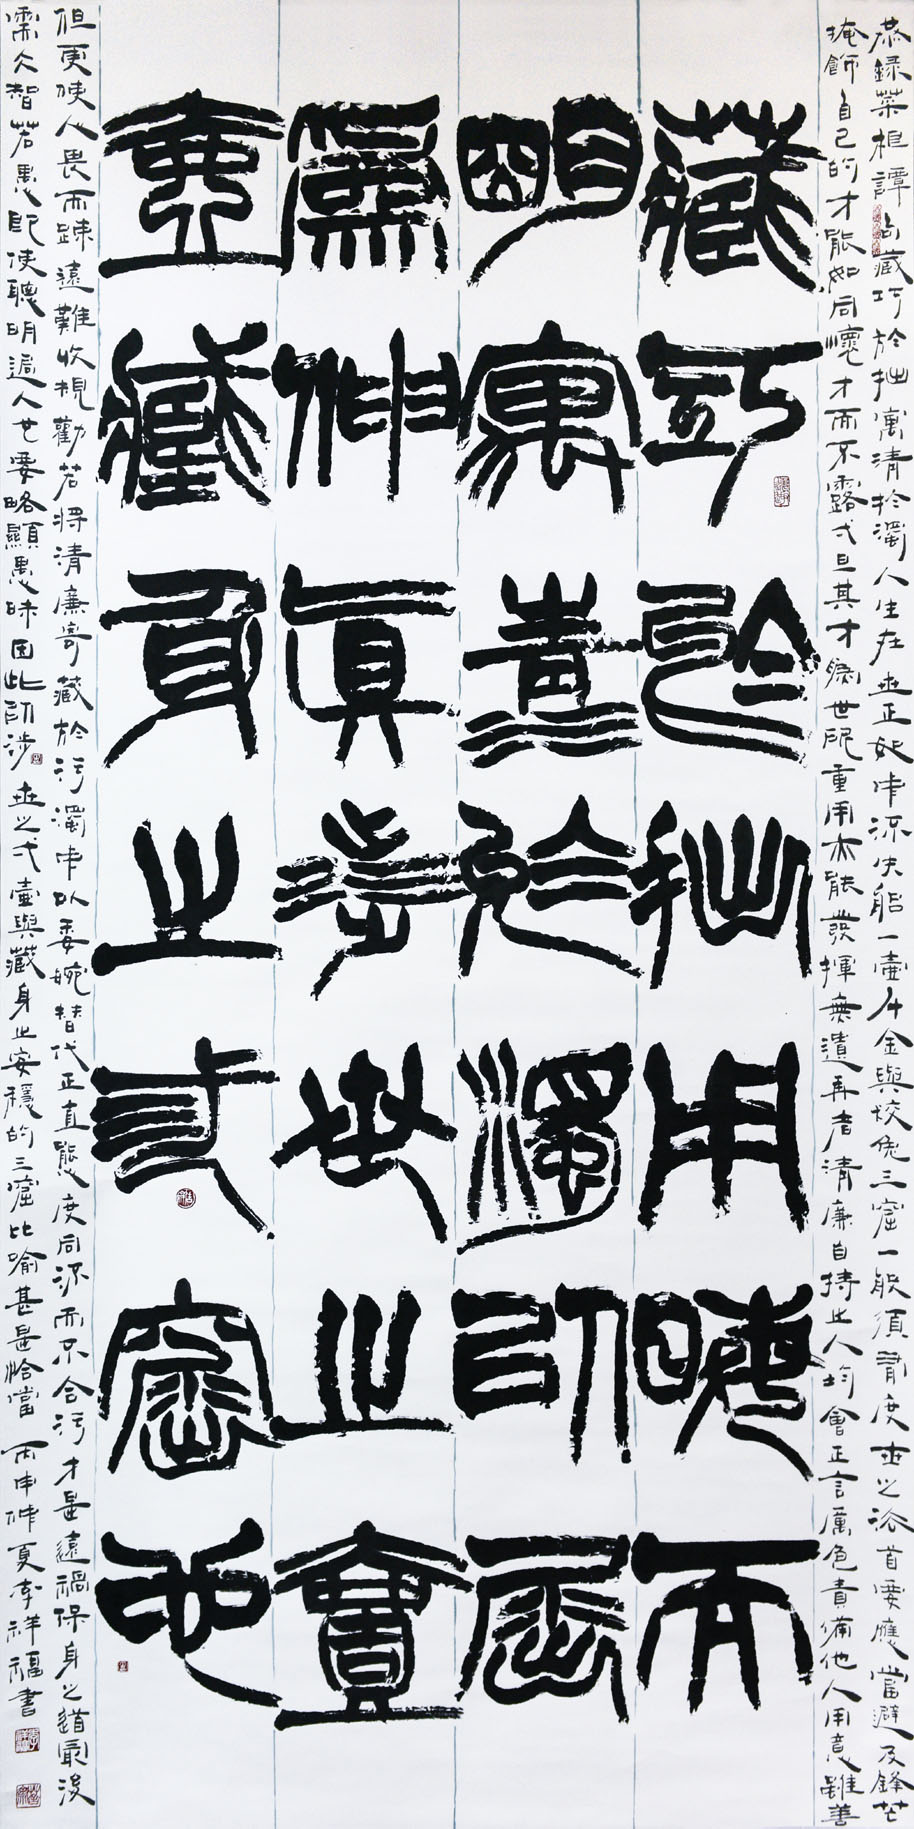 恭錄菜根譚句藏巧於拙寓清於濁人生在世正如中流失船一壺千金與狡兔三窟一般須有度世之法首要應當避及鋒芒
掩飾自己的才能如同懷才而不露弌旦其才為世所重用亦能發揮無遺再者清廉自持之人均會正言厲色責備他人用意雖善
藏巧於拙用晦而
明寓清於濁以屈
為伸真涉世之壹
壺藏身之弎窟也
但更使人畏而疎遠難收規勸若將清廉寄藏於污濁中以委婉替代正直態度同流而不合污才是遠禍保身之道最後
需大智若愚即使聰明過人也要略顯愚昧因此所涉世之弌壺與藏身之安穩的三窟比喻甚是恰當 丙申仲夏李祥福書